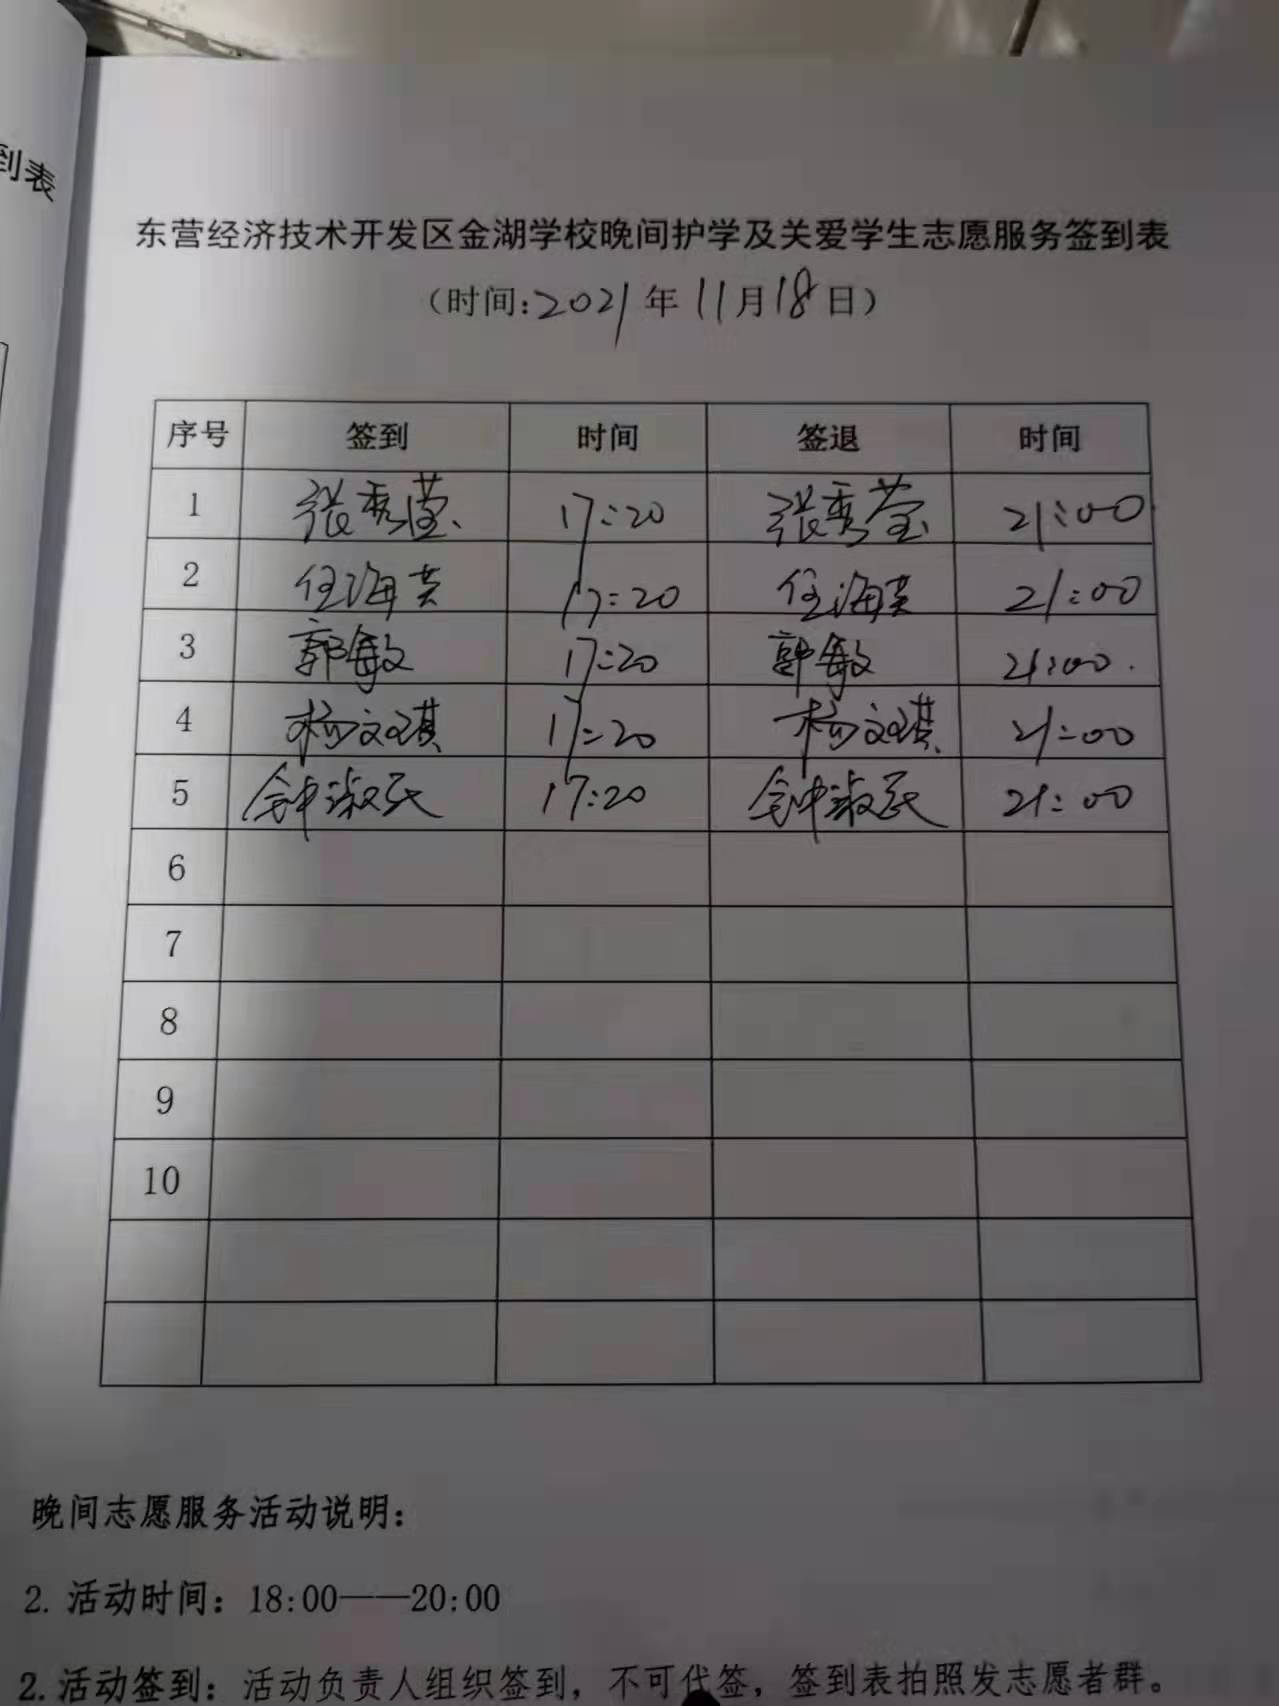 到表
东营经济技术开发区金湖学校晚间护学及关爱学生志愿服务签到表
（时间:2021年11月18日）
序号 签到 时间 签退 时间
1 张秀莹 17:20 张秀莹 21:00
2 任海英 17:20 任海英 21:00
3 郭敏 17:20 郭敏 21:00
4 杨文琪 17:20 杨文琪 21:00
5 钟淑民 17:20 钟淑民 21:00
6
7
8
9
10
晚间志愿服务活动说明：
2. 活动时间：18:00——20:00
2. 活动签到：活动负责人组织签到，不可代签，签到表拍照发志愿者群。